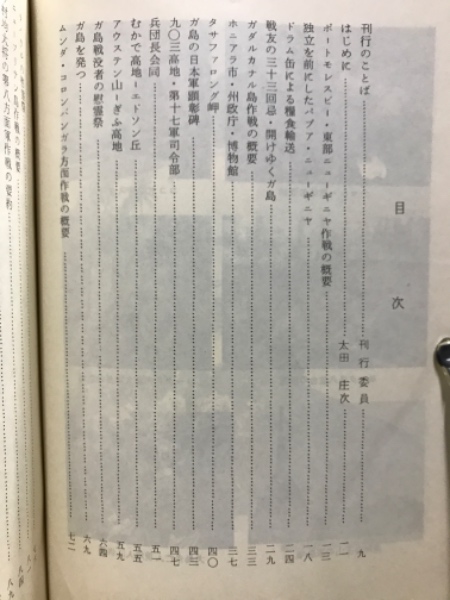 目次
刊行のことば……刊行委員……九
はじめに……太田庄次……一一
ポートモレスビー・東部ニューギニヤ作戦の概要……一三
独立を前にしたパプア・ニューギニヤ……一八
ドラム缶による糧食輸送……二四
戦友の三十三回忌・開けゆくガ島……二九
ガダルカナル島作戦の概要……三三
ホニアラ市・州政庁・博物館……三七
タサファロング岬……四〇
ガ島の日本軍顕彰碑……四三
九〇三高地・第十七軍司令部……四七
兵団長会同……五一
むかで高地=エドソン丘……五五
アウステン山=ぎふ高地……五九
ガ島戦没者の慰霊祭……六四
ガ島を発つ……六九
ムンダ・コロンバンガラ方面作戦の概要……七二